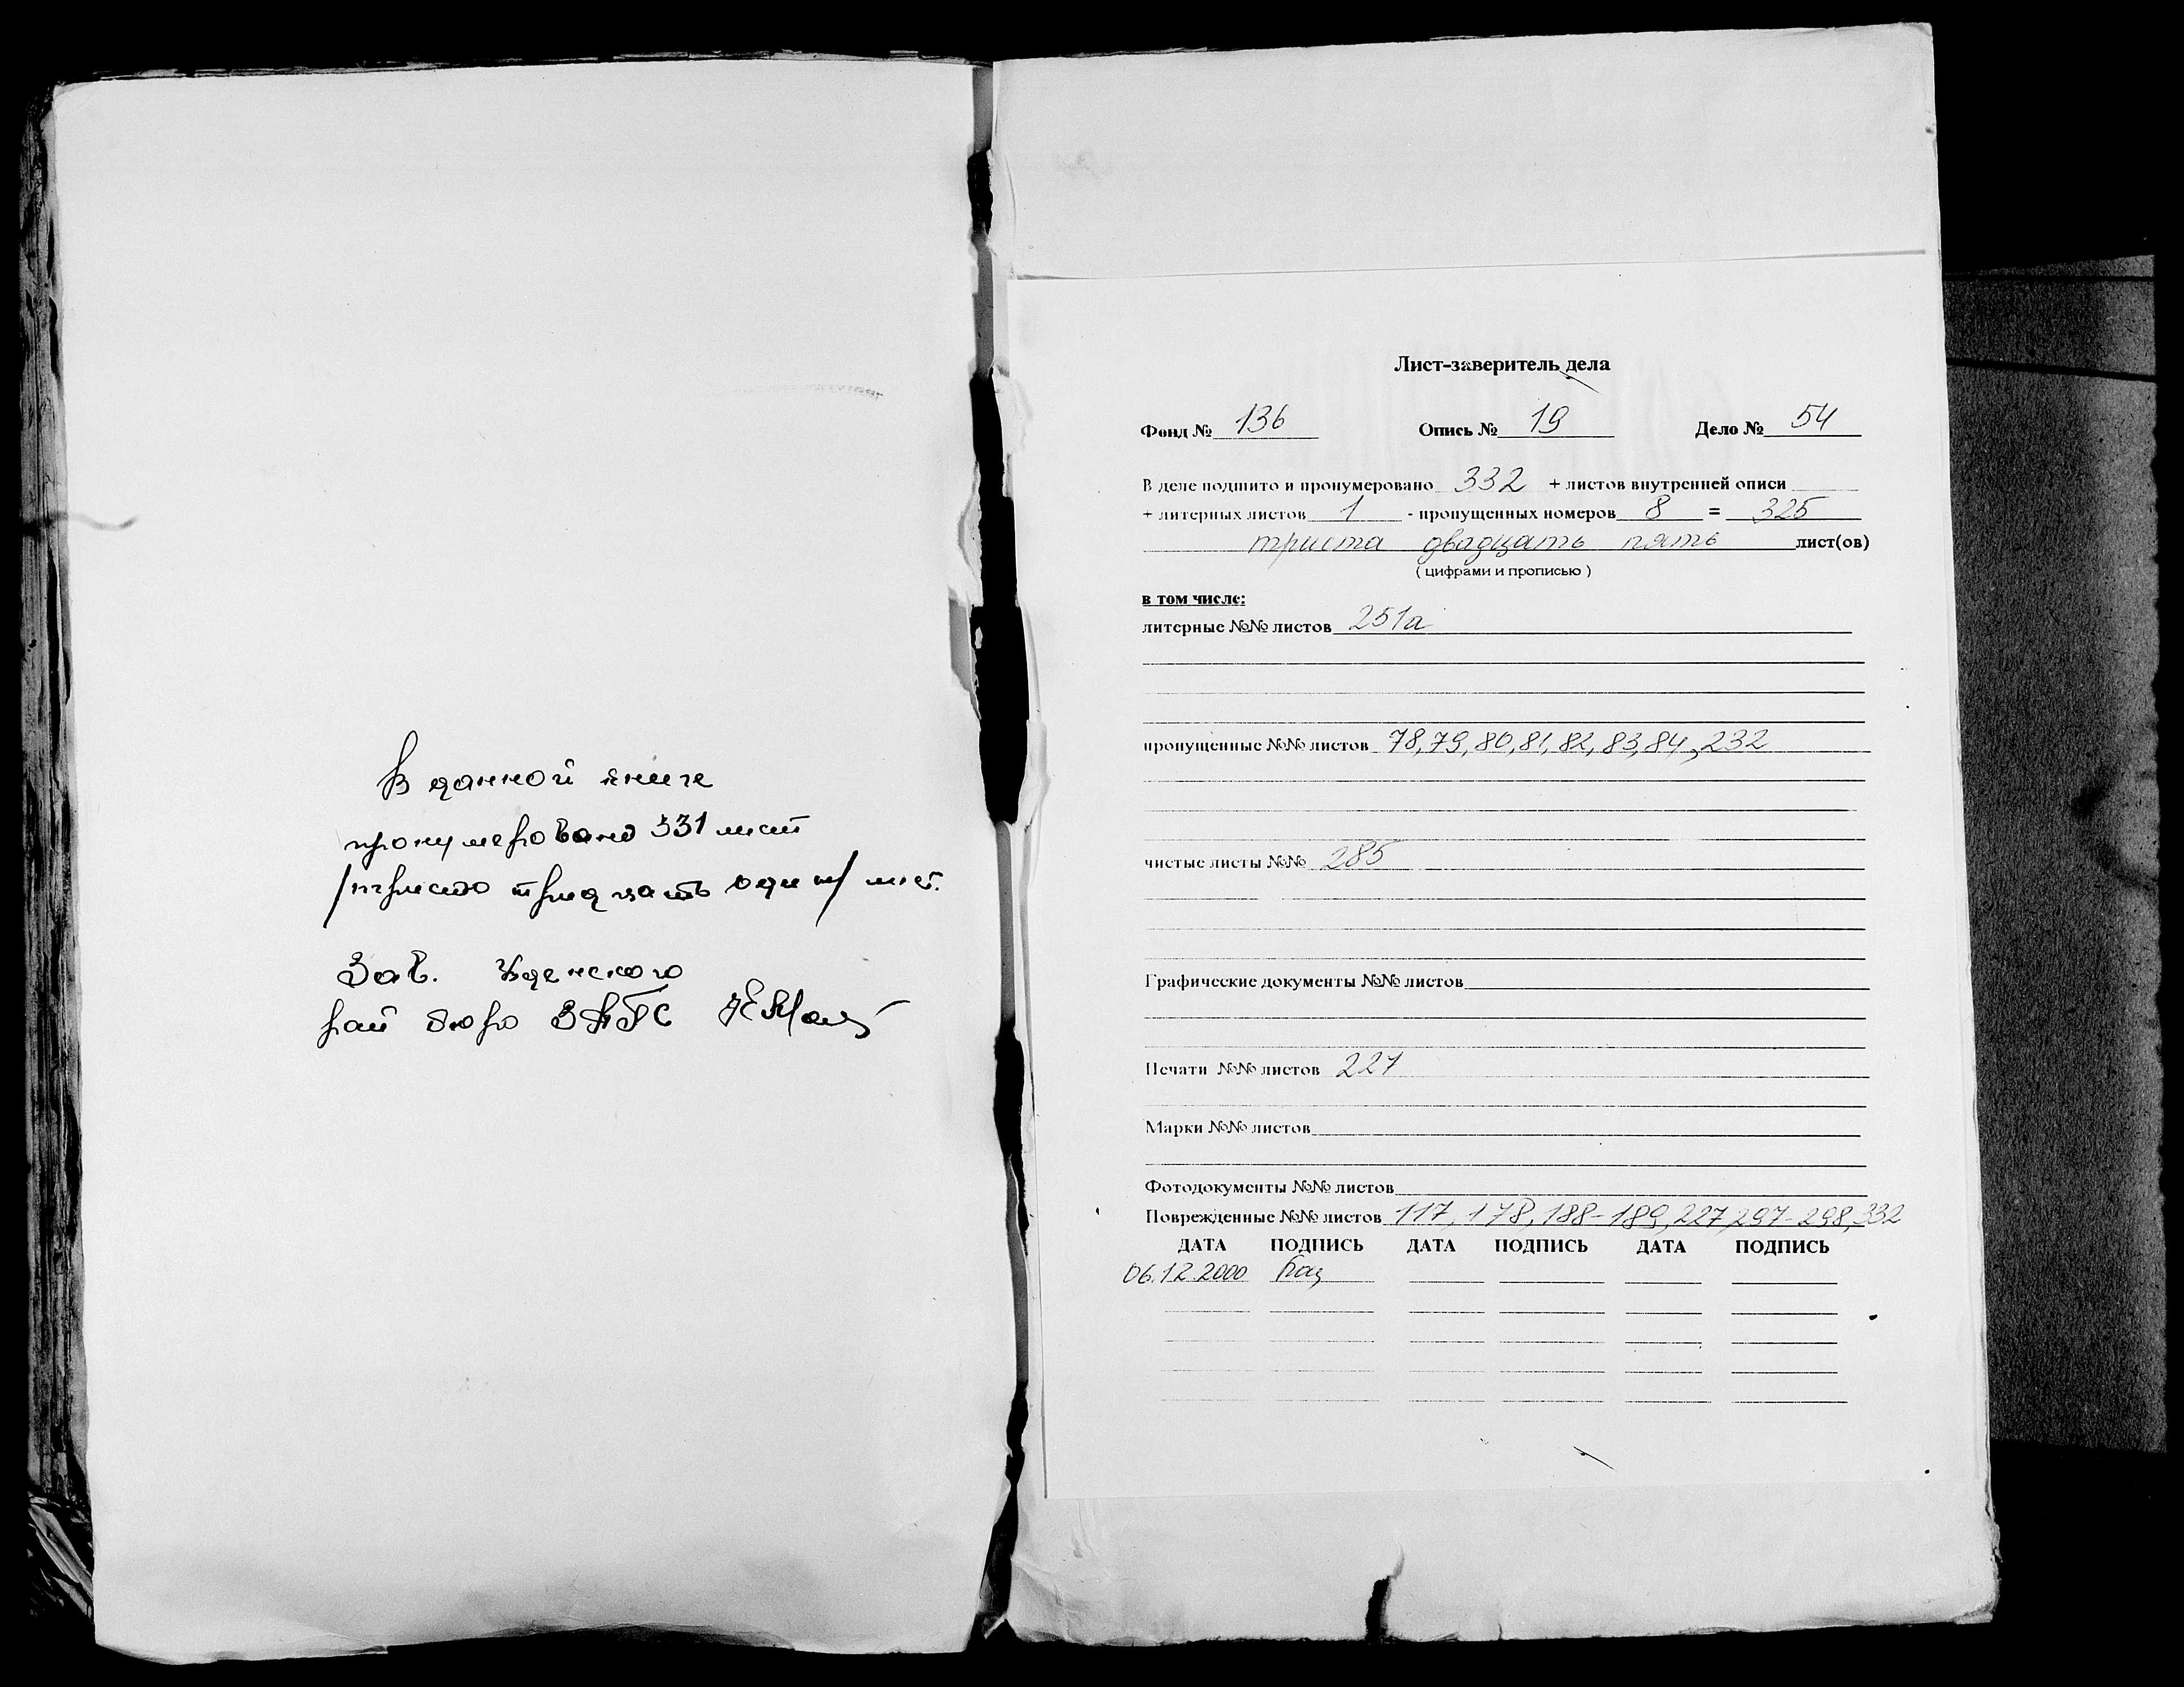 В данной книге
пронумеровано 331 лист
/триста тридцать один/ лист.
Зав.
рай бюро ЗАГС
Лист-заверитель дела
Фонд № 136 Опись № 19 Дело № 54
В деле подшито и пронумеровано 332 + листов внутренней описи
+ литерных листов 1 - пропущенных номеров 8 = 325
триста двадцать пять лист(ов)
( цифрами и прописью )
в том числе:
литерные №№ листов 251а
пропущенные №№ листов 78, 79, 80, 81, 82, 83, 84, 232
чистые листы №№ 285
Графические документы №№ листов
Печати №№ листов 227
Марки №№ листов
Фотодокументы №№ листов
Поврежденные №№ листов 117, 178, 188-189, 227, 297-298, 332
ДАТА ПОДПИСЬ ДАТА ПОДПИСЬ ДАТА ПОДПИСЬ
06.12.2000